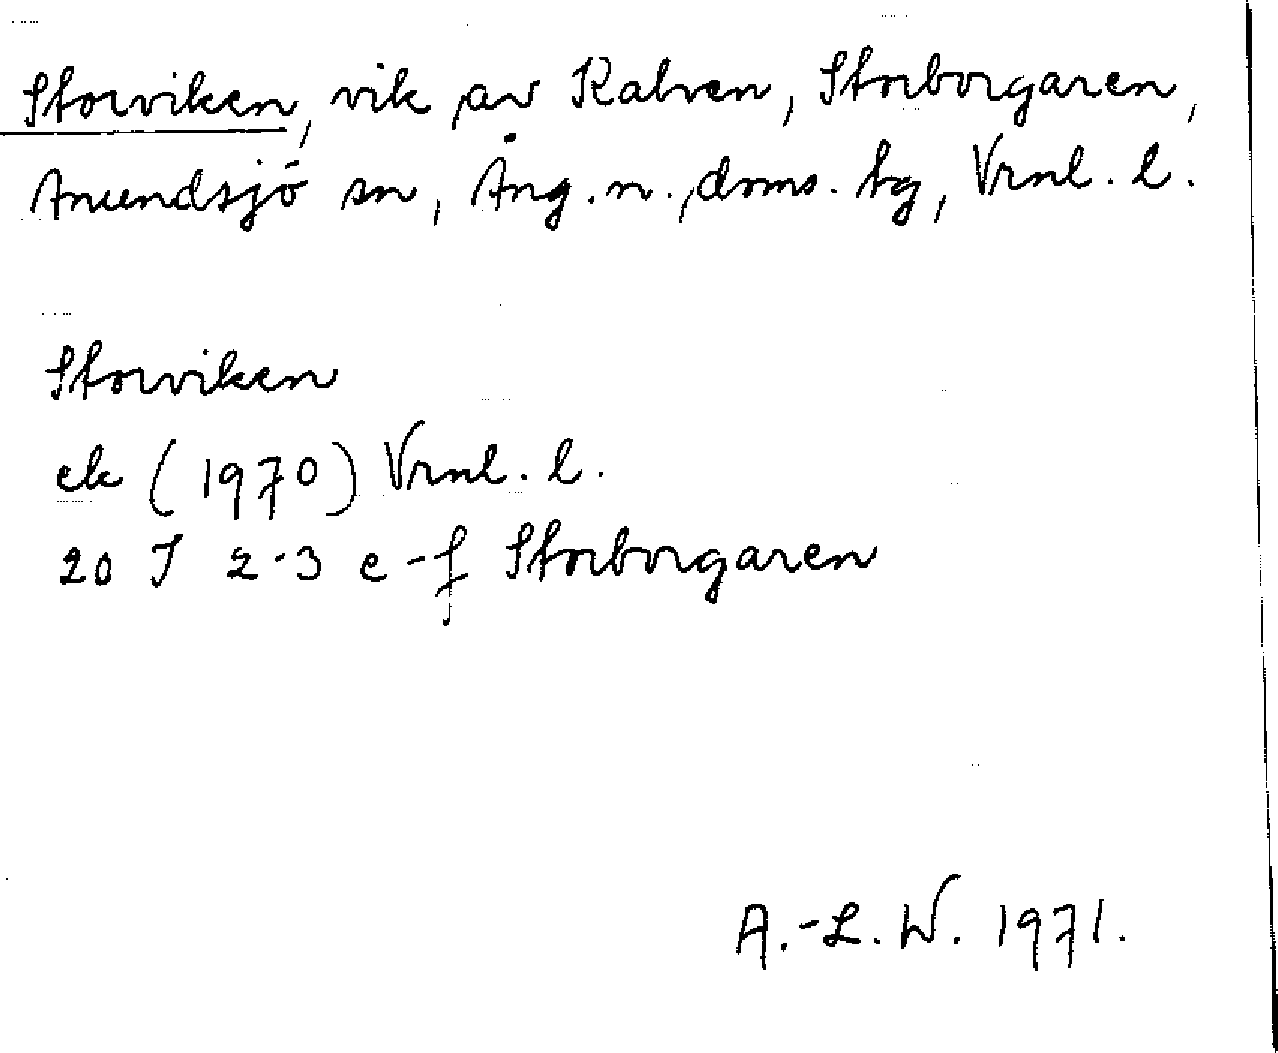 Storviken, vik av Kalven, Storborgaren,
Anundsjö sn, Ång. n. doms. tg, Vrnl. l.
Storviken
ek (1970) Vrnl. l.
20 J 2-3 e-f Storborgaren
A.-L. W. 1971.